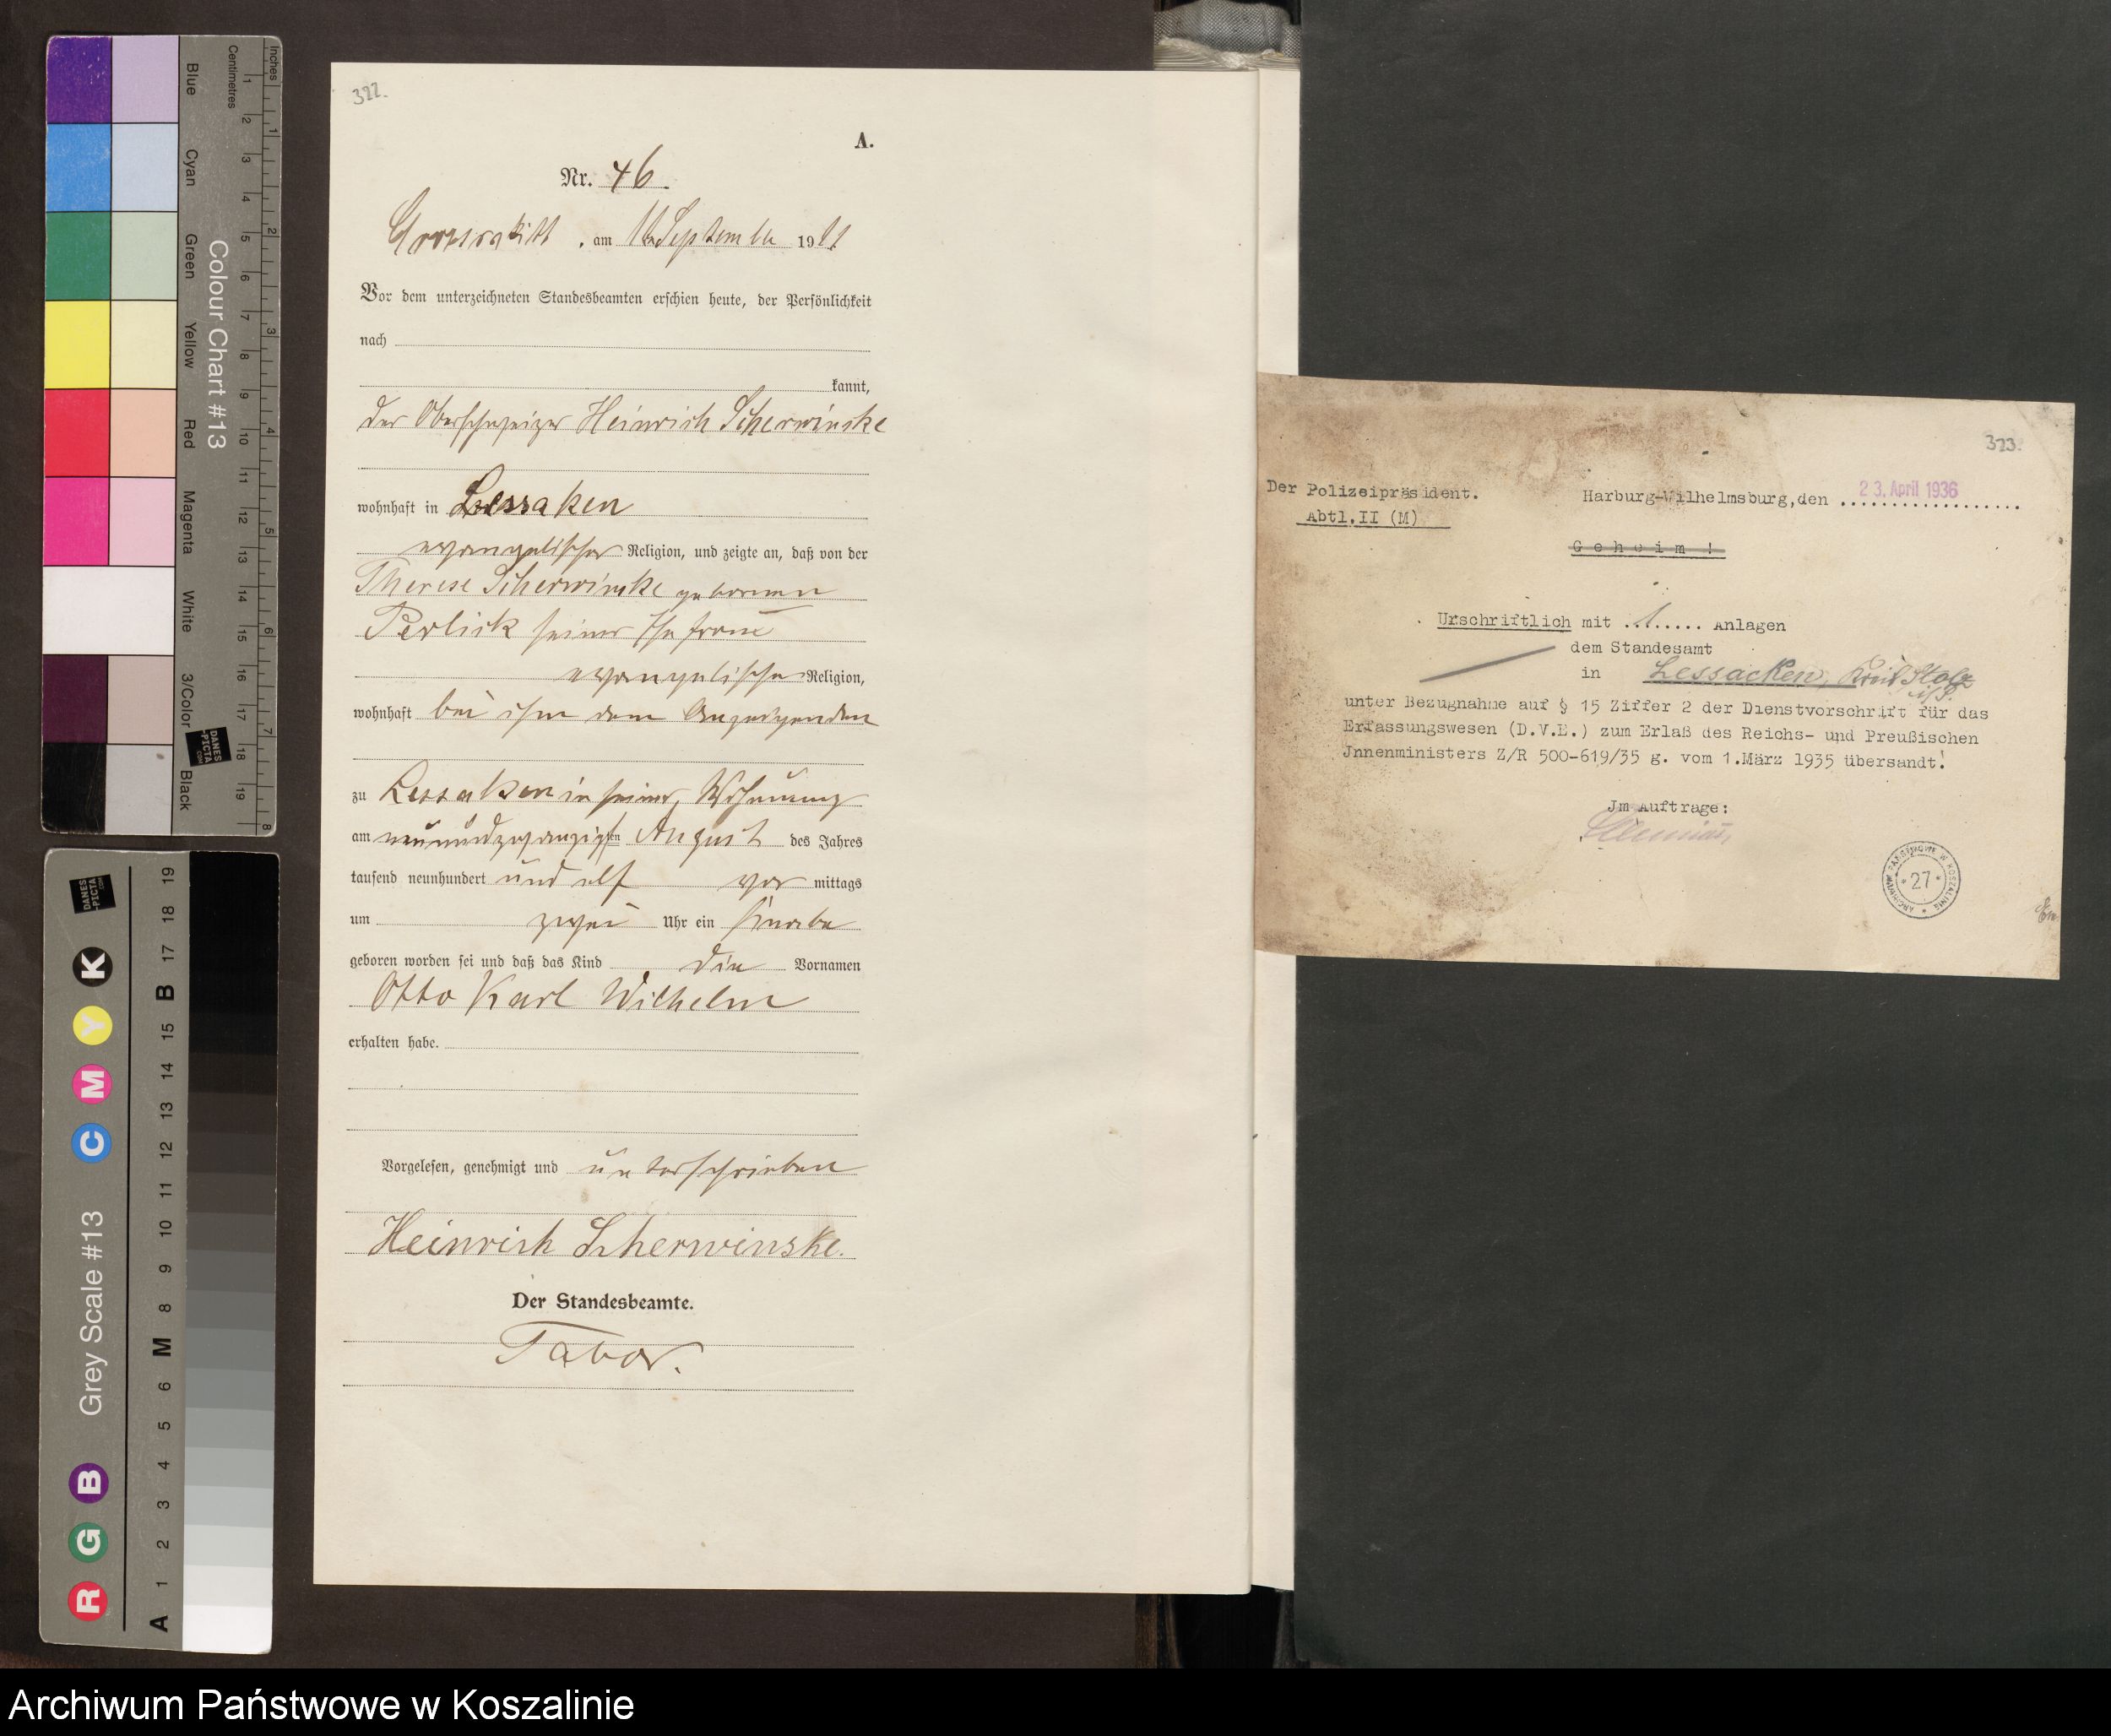 Inches
Centimetres
1 2 3 4 5 6 7 8
1 2 3 4 5 6 7 8 9 10 11 12 13 14 15 16 17 18 19
Blue
Cyan
Green
Yellow
Red
Magenta
White
3/Color
Black
Colour Chart #13
DANES
-PICTA
.COM
Grey Scale #13
R G B C M Y K
DANES
-PICTA
.COM
A 1 2 3 4 5 6 M 8 9 10 11 12 13 14 15 B 17 18 19
322.
A.
Nr. 46.
Grossrakitt, am 16 September 1911
Vor dem unterzeichneten Standesbeamten erschien heute, der Persönlichkeit
nach
kannt,
der Oberschweizer Heinrich Scherwinske
wohnhaft in Lessaken
evangelischer Religion, und zeigte an, daß von der
Therese Scherwinske geborenen
Perlick seiner Ehefrau
evangelischer Religion,
wohnhaft bei ihm dem Anzeigenden
zu Lessaken in seiner Wohnung
am neunundzwanzigsten August des Jahres
tausend neunhundert und elf vormittags
um zwei Uhr ein Knabe
geboren worden sei und daß das Kind die Vornamen
Otto Karl Wilhelm
erhalten habe.
Vorgelesen, genehmigt und unterschrieben
Heinrich Scherwinske.
Der Standesbeamte.
Tabor.
323.
Der Polizeipräsident.
Abtl.II (M)
Harburg-Wilhelmsburg,den 23. April 1936
Geheim!
Urschriftlich mit .1..... Anlagen
dem Standesamt
in Lessacken, Kreis Stolp
i/P.
unter Bezugnahme auf § 15 Ziffer 2 der Dienstvorschrift für das
Erfassungswesen (D.V.E.) zum Erlaß des Reichs- und Preußischen
Jnnenministers Z/R 500-619/35 g. vom 1.März 1935 übersandt.
Jm Auftrage:
ARCHIWUM PAŃSTWOWE W KOSZALINIE
* 27 *
Archiwum Państwowe w Koszalinie